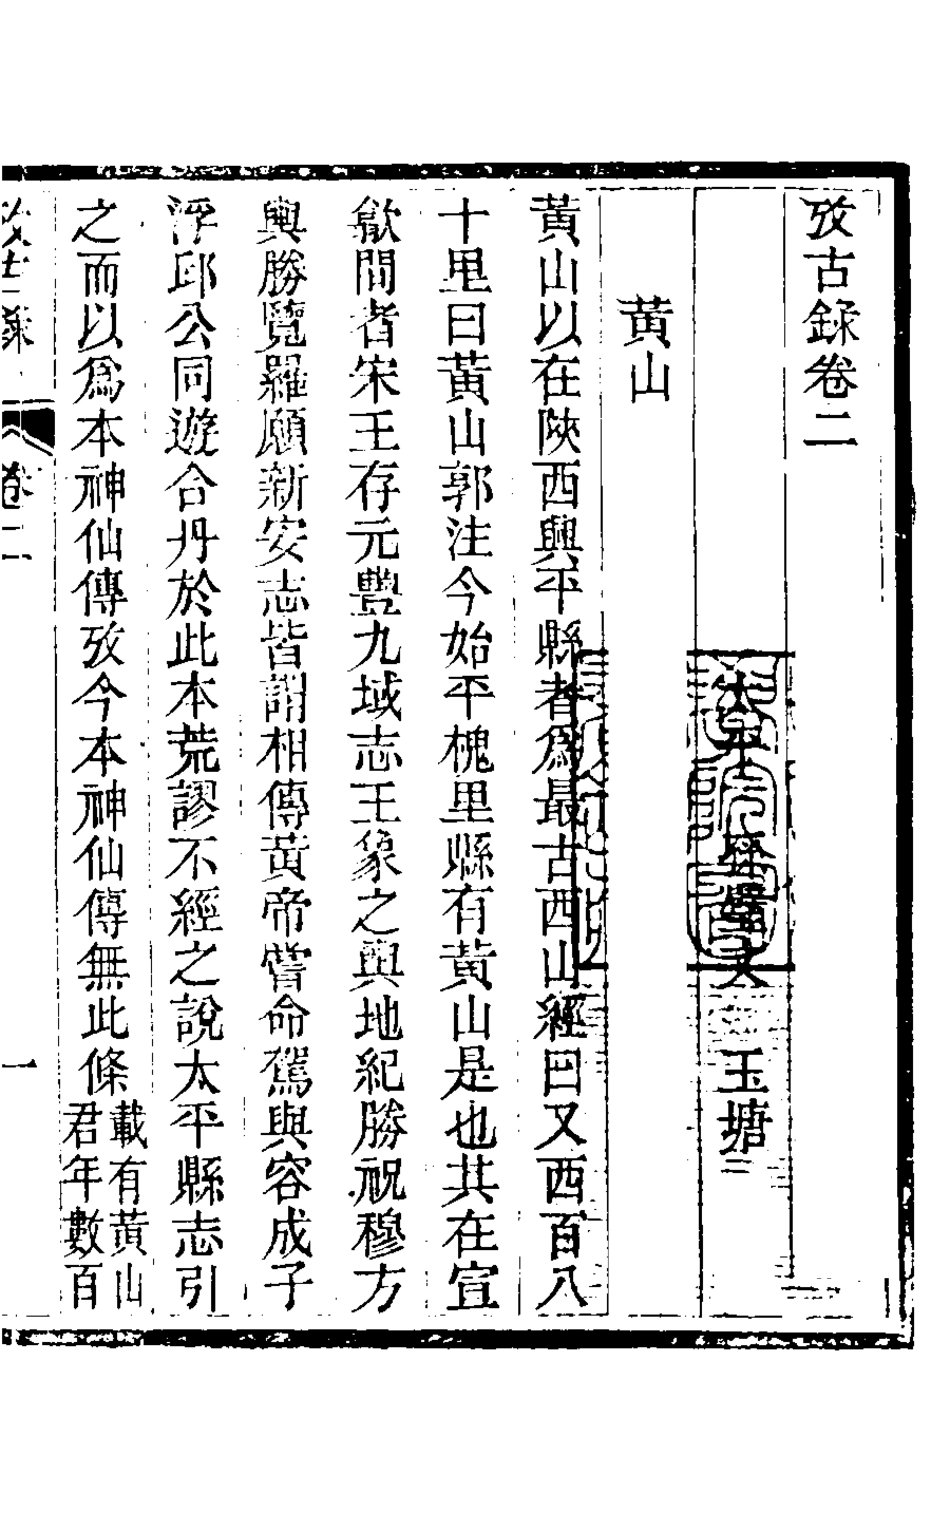 攷古録卷二
太平 孫璧文 玉塘
黃山
黃山以在陝西興平縣者爲最古西山經曰又西百八
十里曰黃山郭注今始平槐里縣有黃山是也其在宣
歙間者宋王存元豐九域志王象之輿地紀勝祝穆方
輿勝覽羅願新安志皆謂相傳黃帝嘗命駕與容成子
浮邱公同遊合丹於此本荒謬不經之說太平縣志引
之而以爲本神仙傳攷今本神仙傳無此條載有黃山
君年數百
攷古録 卷二 一